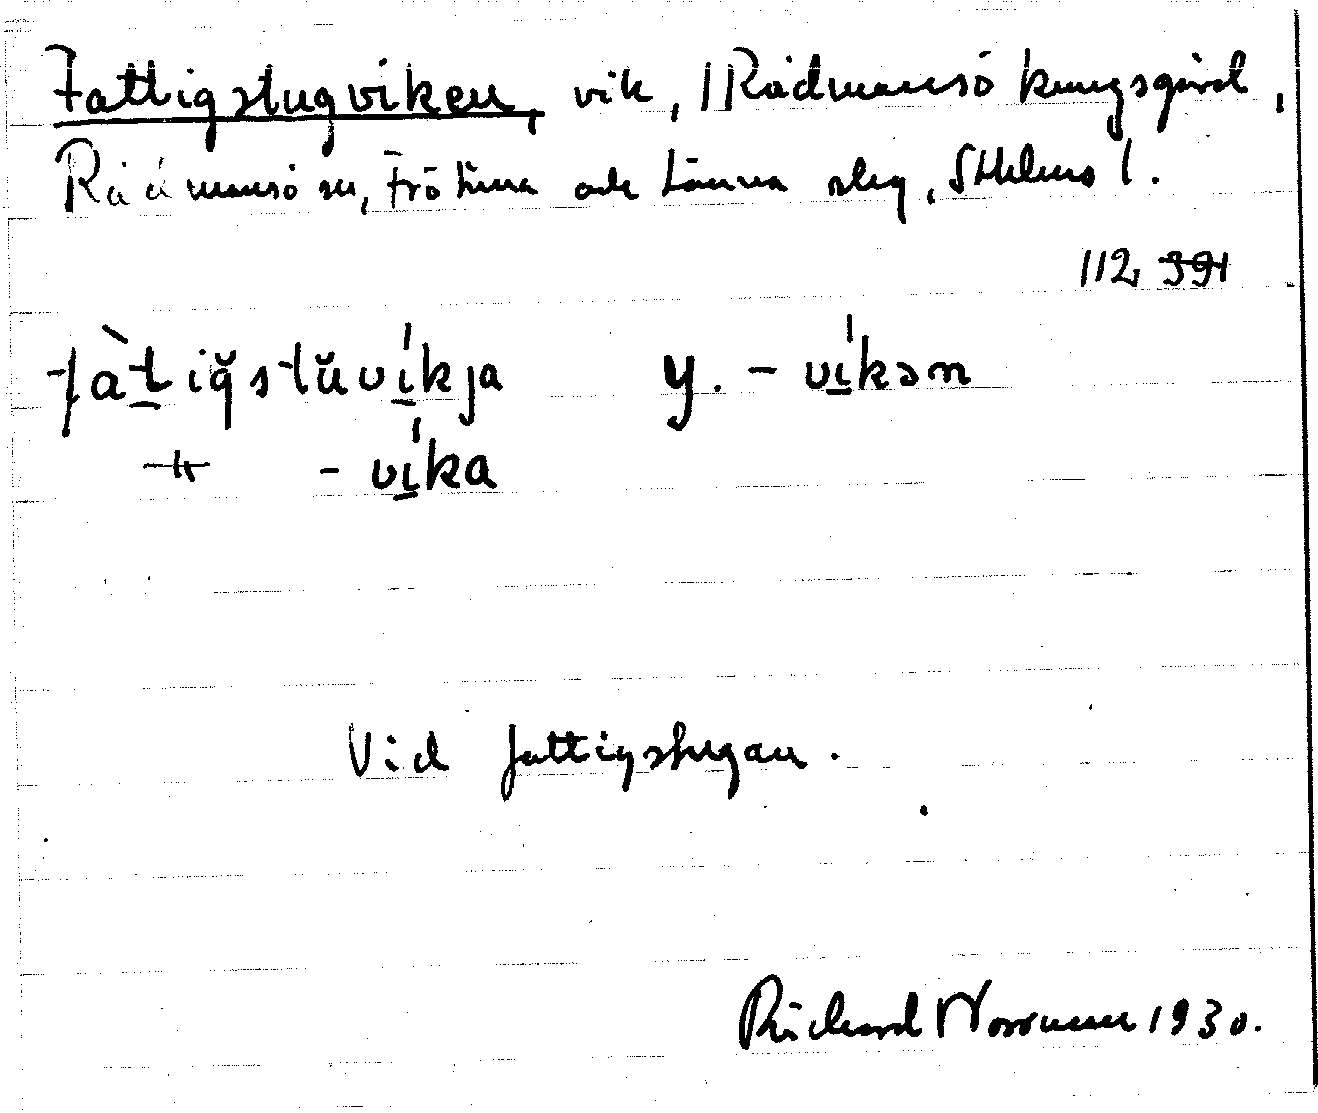 Fattigstugviken, vik, / Rådmansö kungsgård,
Rådmansö sn, Frötuna och Länna sklg, Sthlms l.
112, 391
fàtiğstŭvíkja y. - víkən
- víka
Vid fattigstugan.
Richard Norrman 1930.